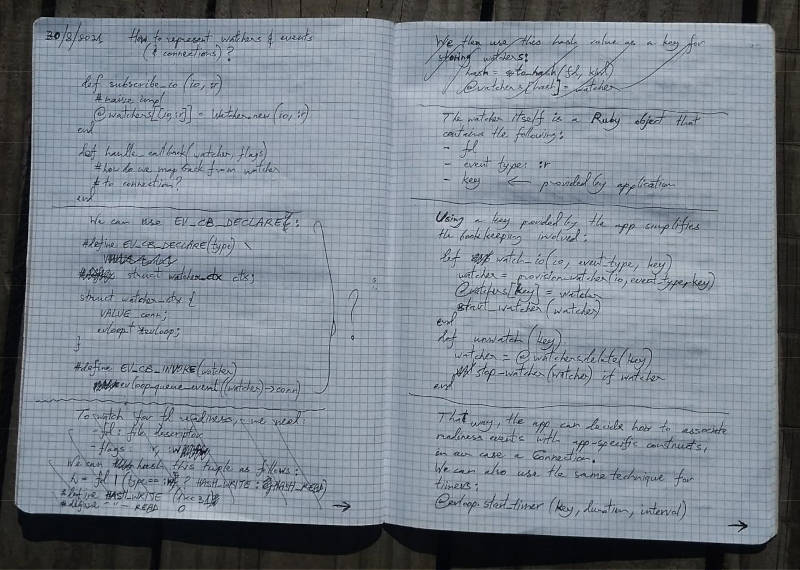 30/8/2021 How to represent watchers & events
(& connections)?
def subscribe_io(io, :r)
# naive impl
@watchers[[io, :r]] = Watcher.new(io, :r)
end
def handle_callback(watcher, flags)
# how do we map back from watcher
# to connection?
end
We can use EV_CB_DECLARE:
#define EV_CB_DECLARE(type) \
struct watcher_ctx ctx;
struct watcher_ctx {
VALUE conn;
evloop_t *evloop;
}
?
#define EV_CB_INVOKE(watcher)
evloop_queue_event((watcher)->conn)
To watch for fd readiness, we need:
- fd: file descriptor
- flags: r,
We can hash this tuple as follows:
h = fd | (type == ? HASH_WRITE : HASH_READ)
#define HASH_WRITE (1<<31)
#define -"- READ 0
→
We then use this hash value as a key for
storing watchers:
hash = to_hash(fd, kind)
@watchers[hash] = watcher
The watcher itself is a Ruby object that
contains the following:
- fd
- event type: :r
- key ← provided by application
Using a key povided by the app simplifies
the bookkeeping involved:
def watch_io(io, event_type, key)
watcher = provision_watcher(io, event_type, key)
@watchers[key] = watcher
start_watcher(watcher)
end
def unwatch(key)
watcher = @watchers.delete(key)
stop_watcher(watcher) if watcher
end
That way, the app can decide how to associate
readiness events with app-specific constructs,
in our case a Connection.
We can also use the same technique for
timers:
@evloop.start_timer(key, duration, interval)
→